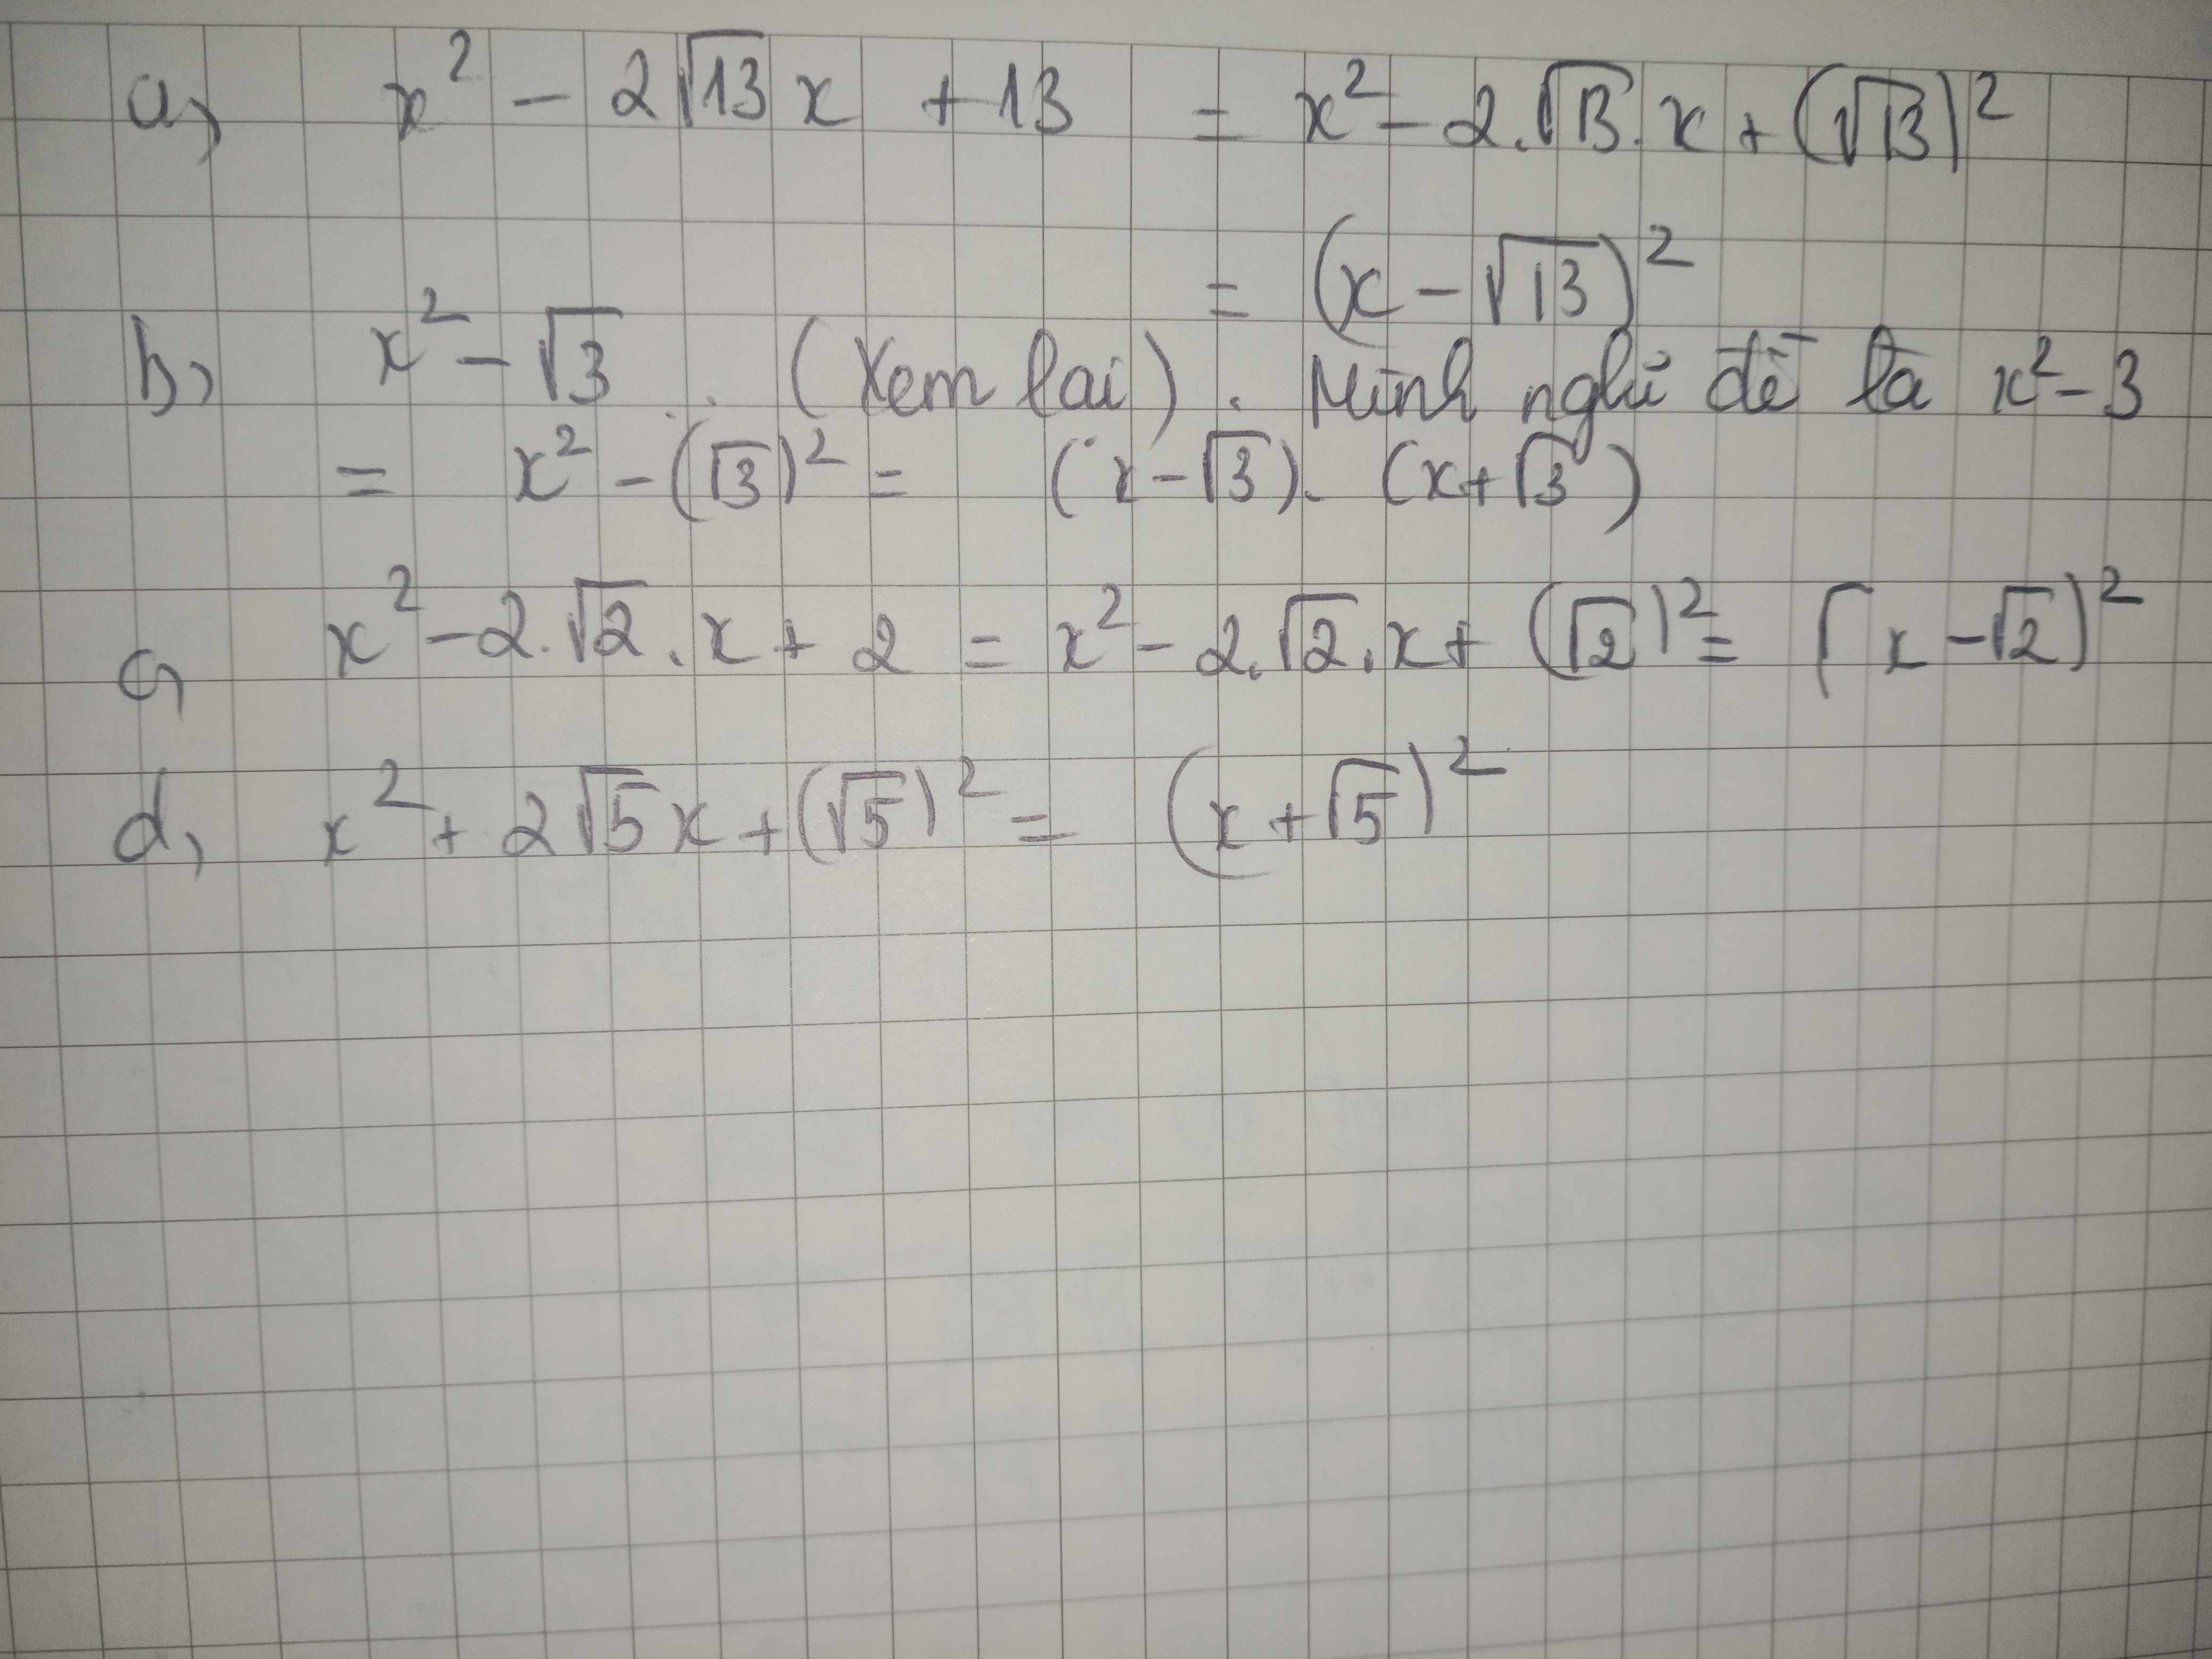 a, x² - 2√13 x + 13 = x² - 2.√13.x + (√13)²
= (x - √13)²
b, x² - √3 .. (Xem lại). Mình nghĩ đề là x² - 3
= x² - (√3)² = (x - √3). (x + √3)
c, x² - 2.√2.x + 2 = x² - 2.√2.x + (√2)² = (x - √2)²
d, x² + 2√5x + (√5)² = (x + √5)²